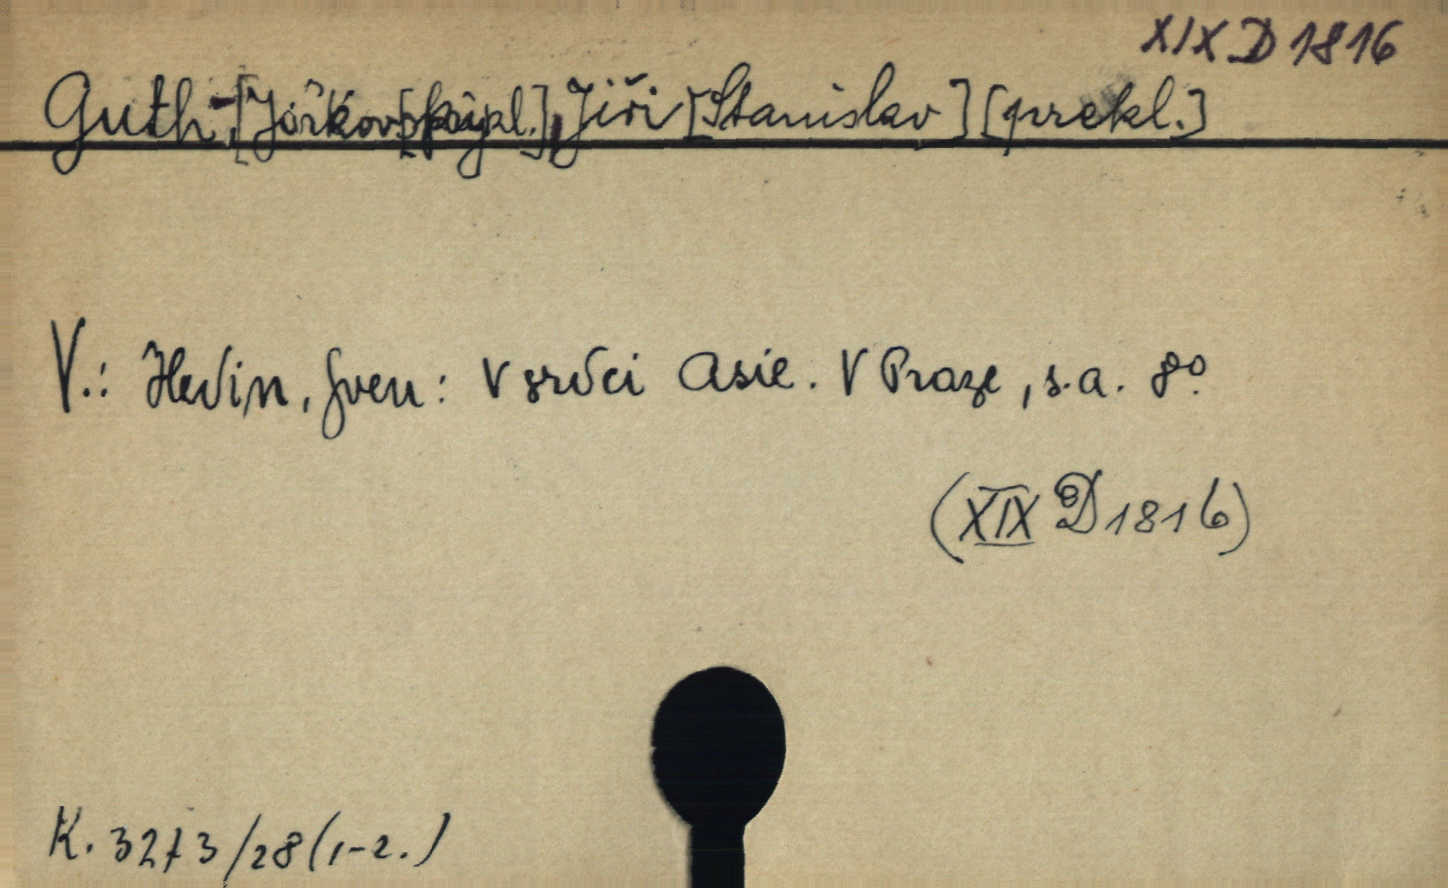 XIX D 1816
Guth-[Jarkovský], Jiří [Stanislav] [překl.]
V.: Hedin, Sven: V srdci Asie. V Praze, s.a. 8°.
(XIX D 1816)
K. 3273/28 (1-2.)